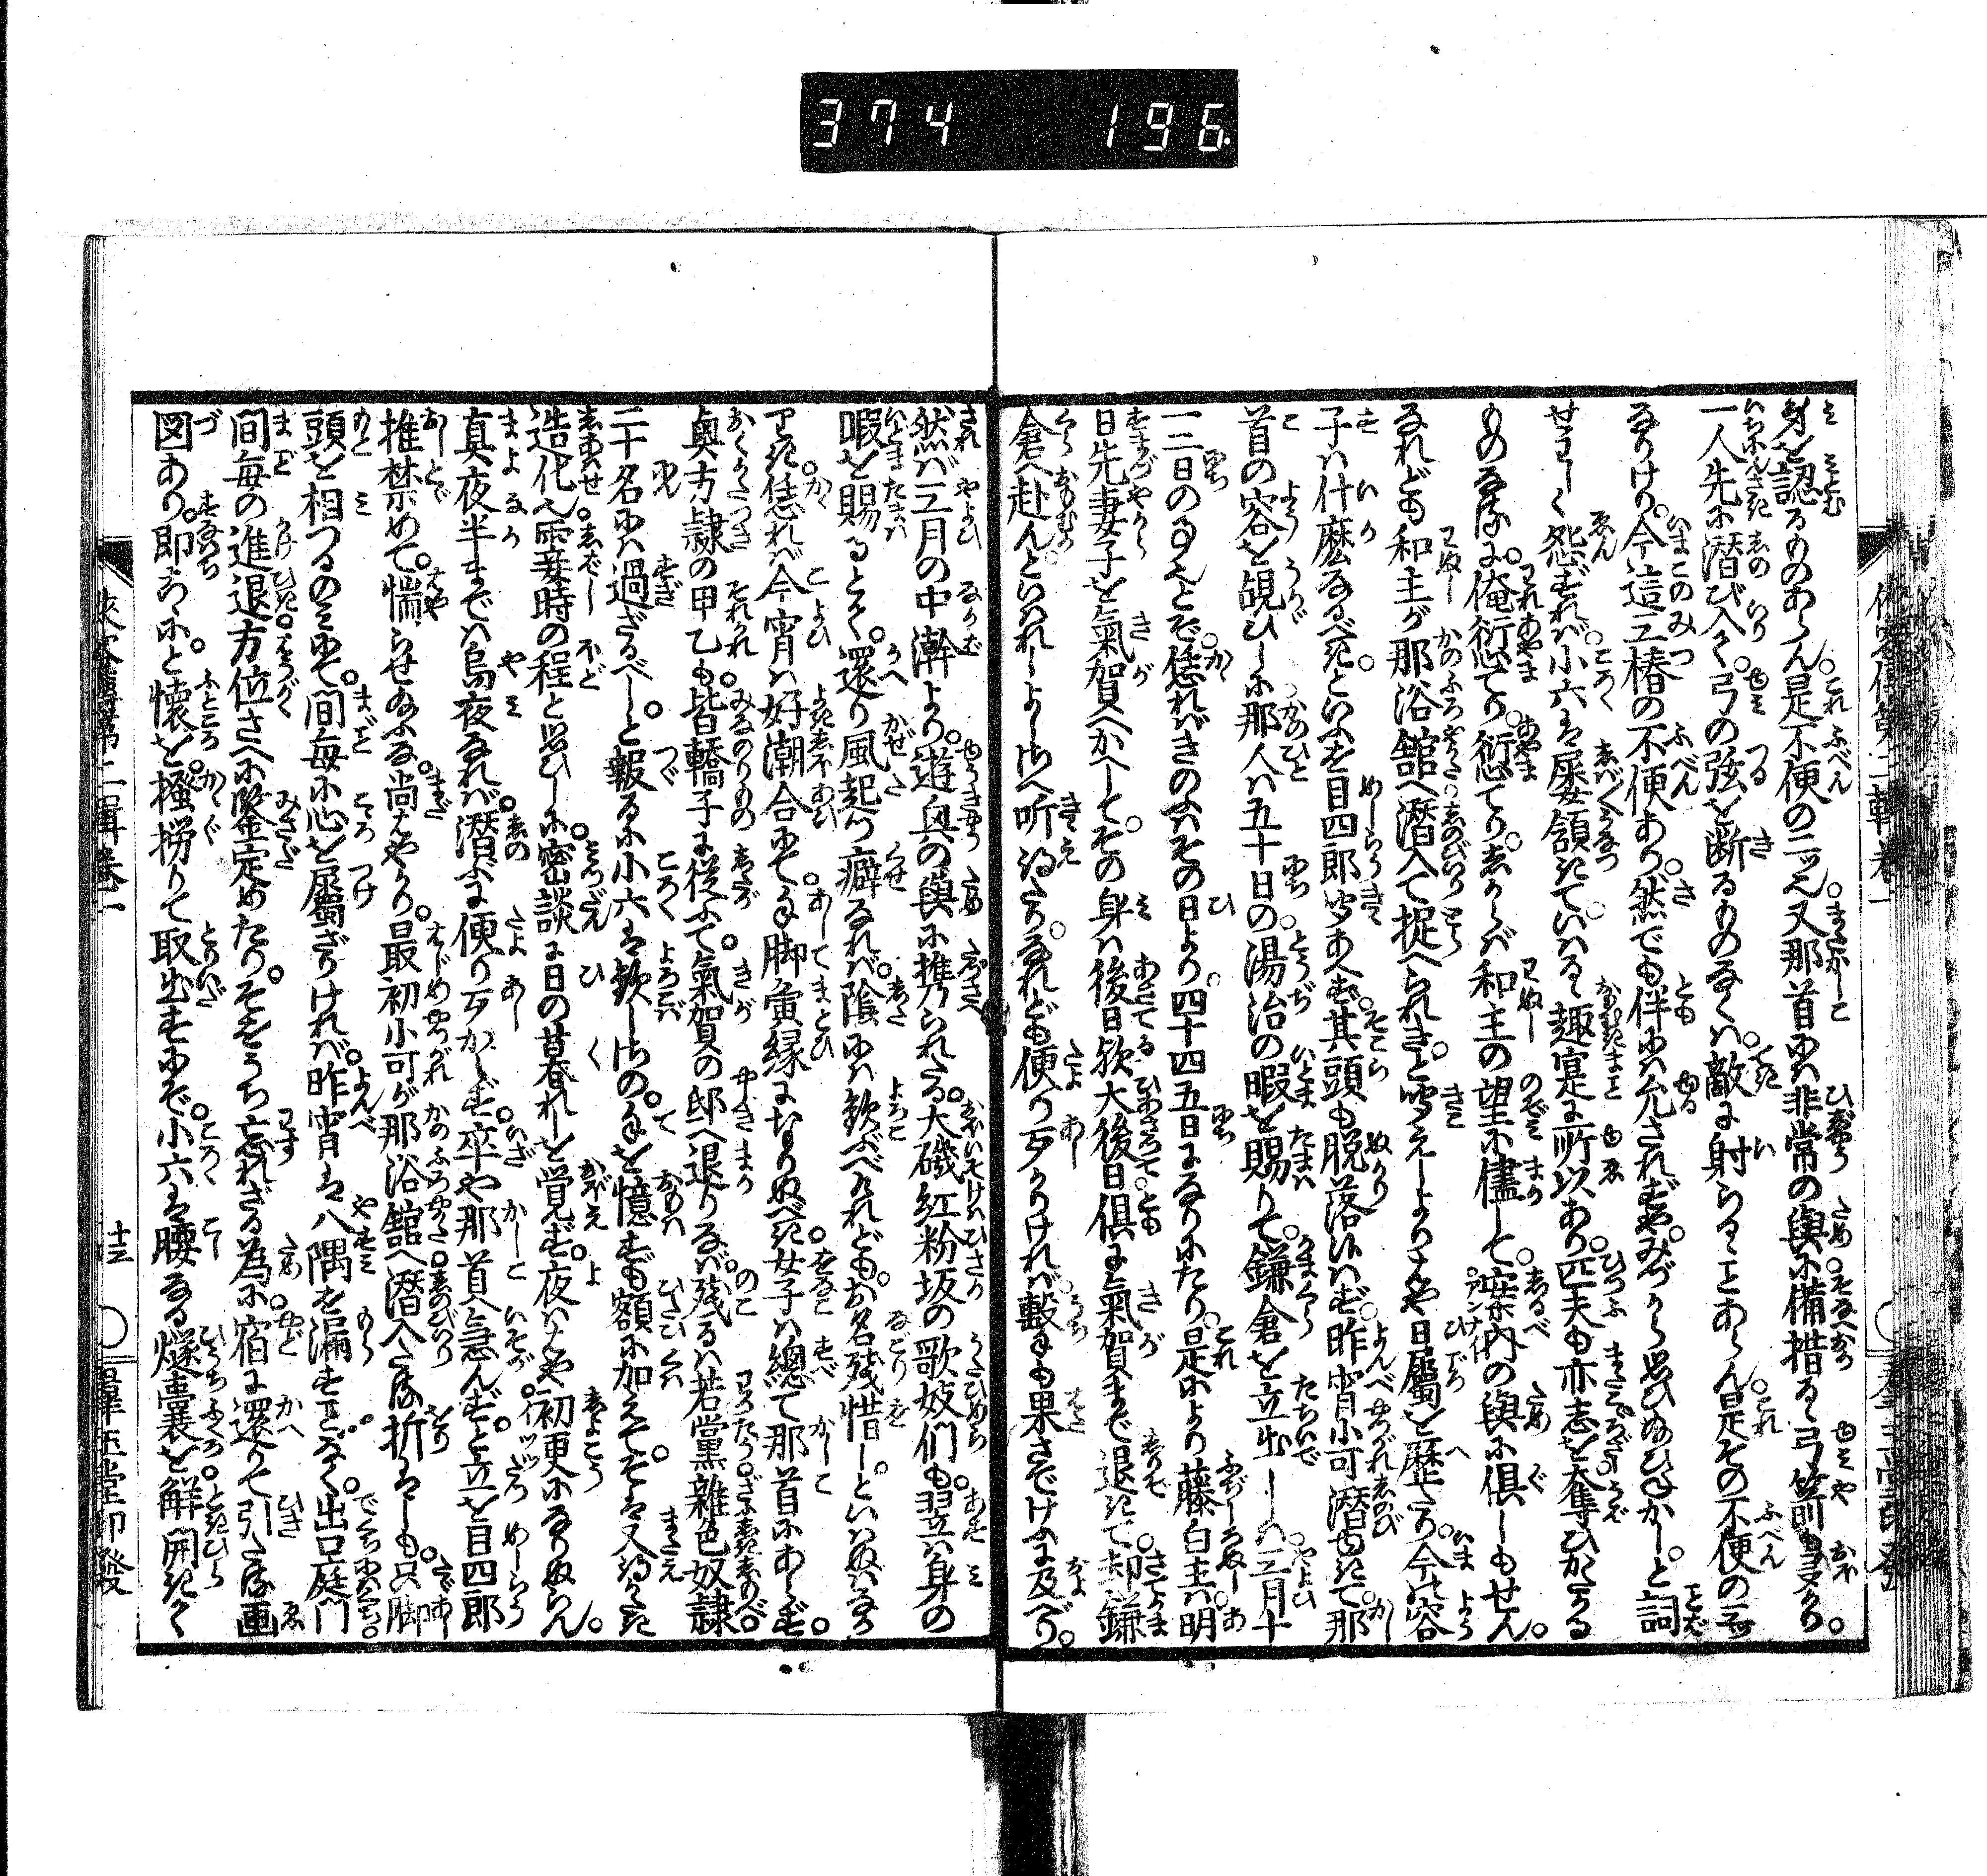 374 196
身を認るものあらん是不便の二ッ也又那首にハ非常の與に備措る弓箭も多かり。
一人先に潜び入て。弓の弦を断るものなくハ。敵に射らるゝことあらん。是その不便の三ッ
なりけり。今這三椿の不便あり。然でも伴ハ允されずや。みづから思ひねかし。と詞
せわしく怨ずれバ。小六ハ屡頷きて。いはるゝ趣寔に所以あり。匹夫も亦志を奪ひがたかる
ものなるに。俺愆てり。愆てり。しからバ和主の望に儘して。案内の與に倶しもせん。
なれども和主が那浴舘へ潜入て捉へられきと聞えしよりさや日属を歴たり。今ハ容
子ハ什麼なるべき。といふを目四郎聞あへず。其頭も脱落候ハず。昨宵小可潜ゆきて。那
首の容を覘ひしに那人ハ五十日の湯治の暇を賜りて。鎌倉を立出しハ三月十
一二日の事也とぞ。恁れバきのふハその日より。四十四五日になりにたり。是により藤白主ハ明
日先妻子を氣賀へかへして。その身ハ後日欤大後日倶に氣賀まで退きて。却鎌
倉へ赴んといはれしよし。聞え候ひたり。なれども便り歹かりければ。撃も果さでけふに及べり。
然バ三月の中澣より。遊興の與に携られたる。大磯紅粉坂の歌妓們も。翌ハ身の
暇を賜るとて。還り風起つ癖なれバ。陰にハ歓ぶべけれども。お名残惜しといハぬハなか
りき。恁れバ今宵ハ好潮合にて候。脚手纏縁になりぬべき女子ハ總て那首にあらず。
奥方隷の甲乙も。皆轎子に従ふて。氣賀の邸へ退りなバ。残るハ若黨雜色奴隷
二十名にハ過ざるべし。と報るに小六ハ歓しさの。手を憶ずも額に加えて。そハ又得がたき
造化也。霎時の程と思ひしに。密談に日の昏れしを覚ず。夜ハはや初更になりぬらん。
真夜半までハ烏夜なれバ。潜ぶに便り歹からず。卒や那首へ急んず。と立を目四郎
推禁めて。惴らせ給ふな。尚はやかり。最初小可が那浴舘へ潜入たる折ハしも。只脚
頭を相つるのミにて。間毎に心を属ざりけれバ。昨宵ハ八隅を漏すことなく。出口庭門
間毎の進退方位さへに鑒定めたり。そをうち忘れざる為に。宿に還りて引たる画
図あり。即こゝに。と懐を掻撈りて取出すにぞ。小六ハ腰なる燧嚢を解開きて
侠客傳第二輯卷一
十三
羣玉堂印發